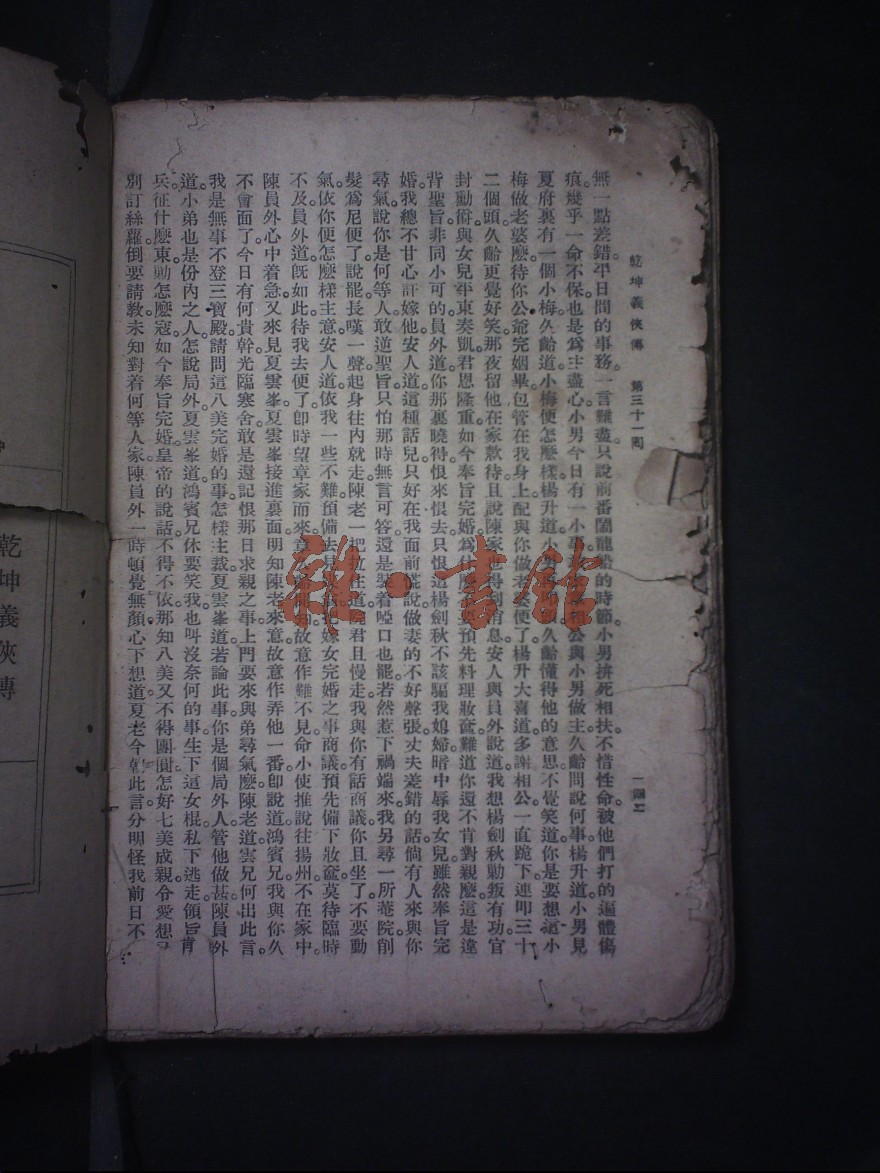 乾坤義俠傳　第三十一回
無一點差錯。平日間的事務。一言難盡。只說前番鬧龍船的時節。小男拚死相扶。不惜性命。被他們打的逼體傷
痕。幾乎一命不保。也是爲主盡心。小男今日有一小事。相公與小男做主。久齡問說何事。楊升道。小男見
夏府裏有一個小梅。久齡道。小梅便怎麼樣。楊升道。小男久齡懂得他的意思。不覺笑道。你是要想這小
梅做老婆麼。待你公爺完姻畢。包管在我身上。配與你做老婆便了。楊升大喜道。多謝相公。一直跪下。連叩三十
二個頭。久齡更覺好笑。那夜留他在家款待。且說陳家也得到消息。安人與員外說道。我想楊劍秋勦叛有功。官
封勳爵。與女兒平東奏凱。君恩隆重。如今奉旨完婚。爲什麼不要預先料理妝奩。難道你還不肯對親麼。這是違
背聖旨。非同小可的。員外道。你那裏曉得。恨來恨去。只恨這楊劍秋不該騙我媳婦。暗中辱我女兒。雖然奉旨完
婚。我總不甘心許嫁他。安人道。這種話兒。只好在我面前從說。做妻的不好聲張丈夫差錯的話。倘有人來與你
尋氣。說你是何等人。敢逆聖旨。只怕那時無言可答。還是裝着啞口也罷。若然惹下禍端來。我另尋一所菴院。削
髮爲尼便了。說罷。長嘆一聲。起身往內就走。陳老一把拉住道。院君且慢走。我與你有話商議。你且坐了。不要動
氣。依你便怎麼樣主意。安人道。依我一些不難。預備去見把嫁女完婚之事商議。預先備下妝奩。莫待臨時
不及。員外道。旣如此。待我去便了。卽時望章家而來。章知。故意作難不見。命小使推說往揚州。不在家中。
陳員外心中着急。又來見夏雲峯。夏雲峯接進裏面。明知陳老來意。故意作弄他一番。卽說道。鴻賓兄。我與你久
不會面了。今日有何貴幹。光臨寒舍。敢是還記恨那日求親之事。上門要來與弟尋氣麼。陳老道。雲兄何出此言。
我是無事不登三寶殿。請問這八美完婚的事。怎樣主裁。夏雲峯道。若論此事。你是個局外人。管他做甚。陳員外
道。小弟也是份內之人。怎說局外。夏雲峯道。鴻賓兄休要笑我。也叫沒奈何的事。生下這女棍。私下逃走。領旨肯
兵。征什麼東。勦怎麼寇。如今奉旨完婚。皇帝的說話。不得不依。那知八美又不得團圓。怎好七美成親。令愛想
別訂絲蘿。倒要請教。未知對着何等人家。陳員外一時頓覺無顏。心下想道。夏老今此言。分明怪我前日不
乾坤義俠傳
雜·書館